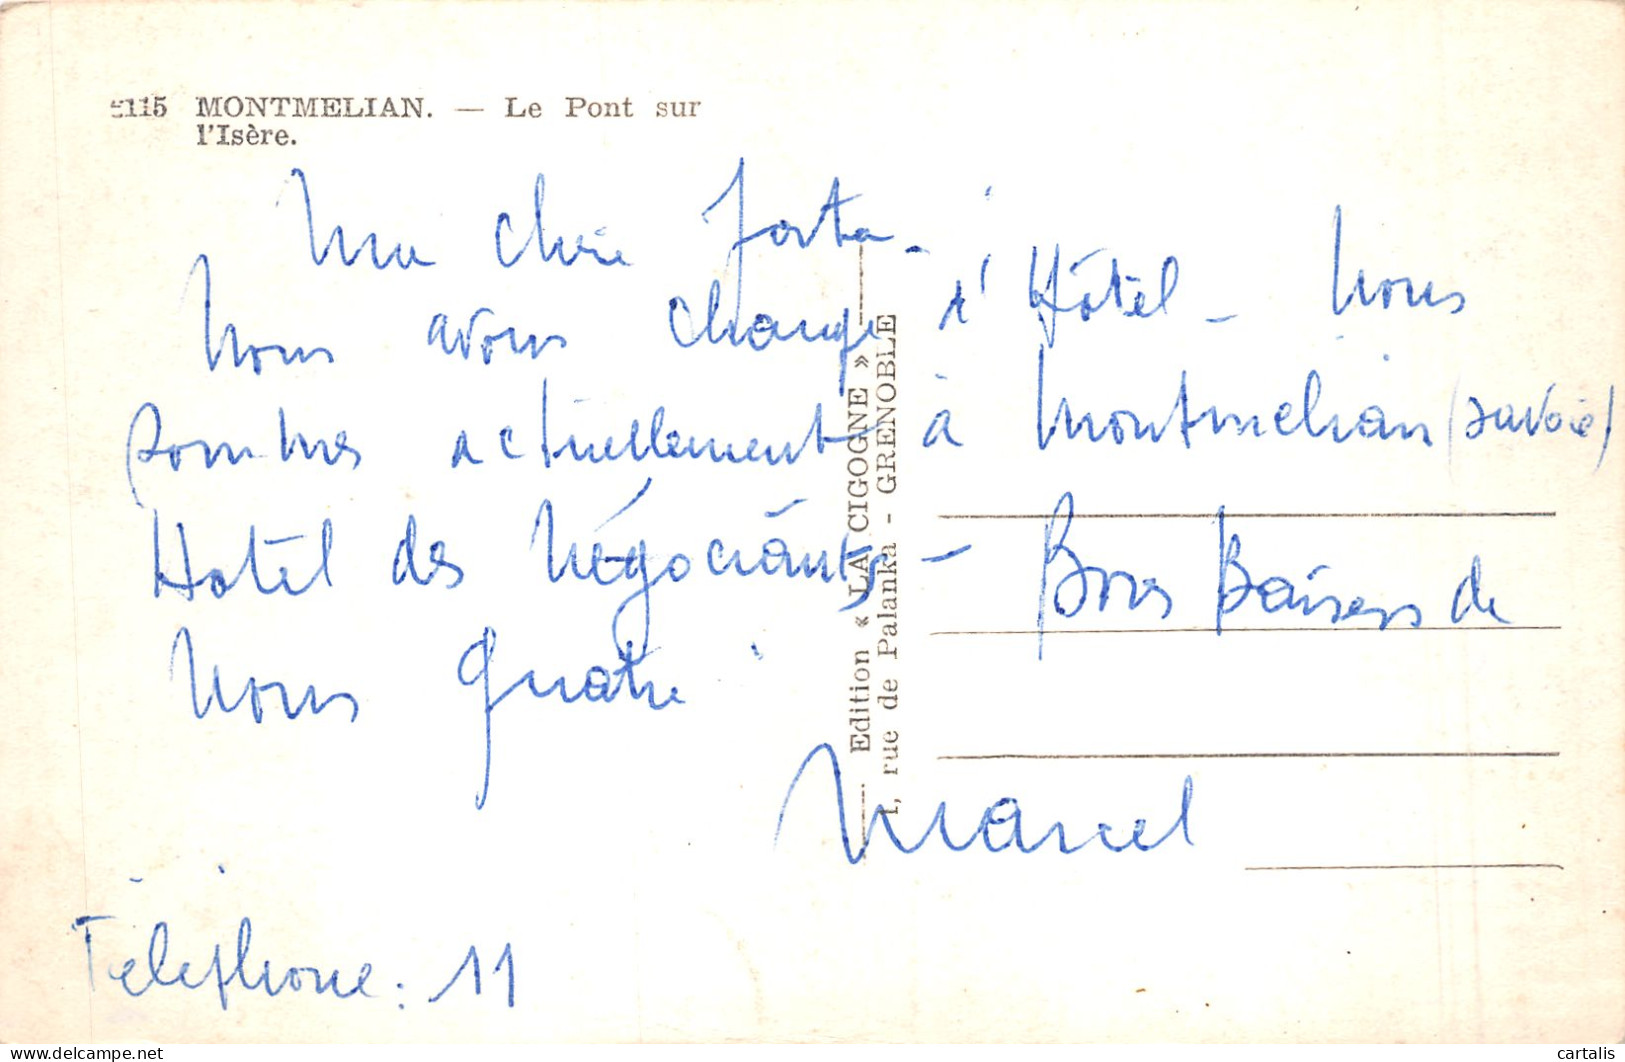 2115 MONTMELIAN. — Le Pont sur
l'Isère.
Ma chère
Nous avons changé d'Hôtel - Nous
sommes actuellement à Montmelian (Savoie)
Hotel des Négociants - Bons Baisers de
Nous quatre
Marcel
Téléphone : 11
Edition « LA CIGOGNE »
1, rue de Palanka - GRENOBLE
cartalis
www.delcampe.net